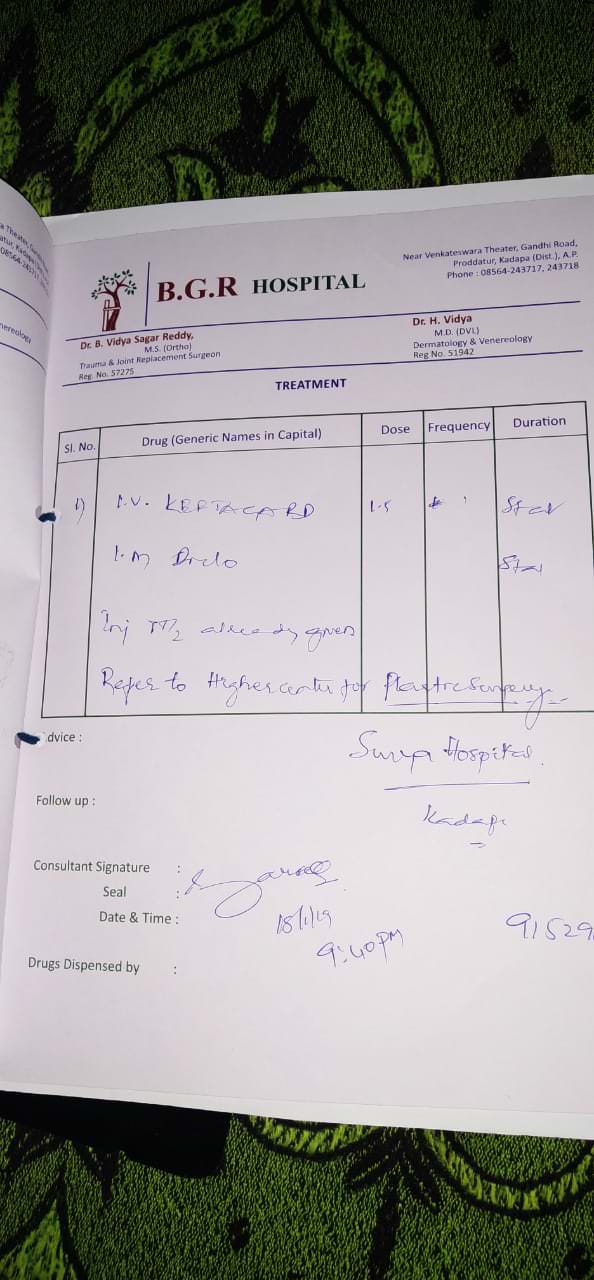 Near Venkateswara Theater, Gandhi Road,
Proddatur, Kadapa (Dist.), A.P.
Phone : 08564-243717, 243718
B.G.R HOSPITAL
Dr. B. Vidya Sagar Reddy,
M.S. (Ortho)
Trauma & Joint Replacement Surgeon
Reg. No. 57275
Dr. H. Vidya
M.D. (DVL)
Dermatology & Venereology
Reg No. 51942
TREATMENT
Sl. No. Drug (Generic Names in Capital) Dose Frequency Duration
1) I.V. 1.5 Stat
I.M Stat
Inj already given
Refer to Higher center for Plastic Surgery
dvice :
Hospital
Kadapa
Follow up :
Consultant Signature :
Seal :
Date & Time : 18/1/19
9:40PM
91529
Drugs Dispensed by :